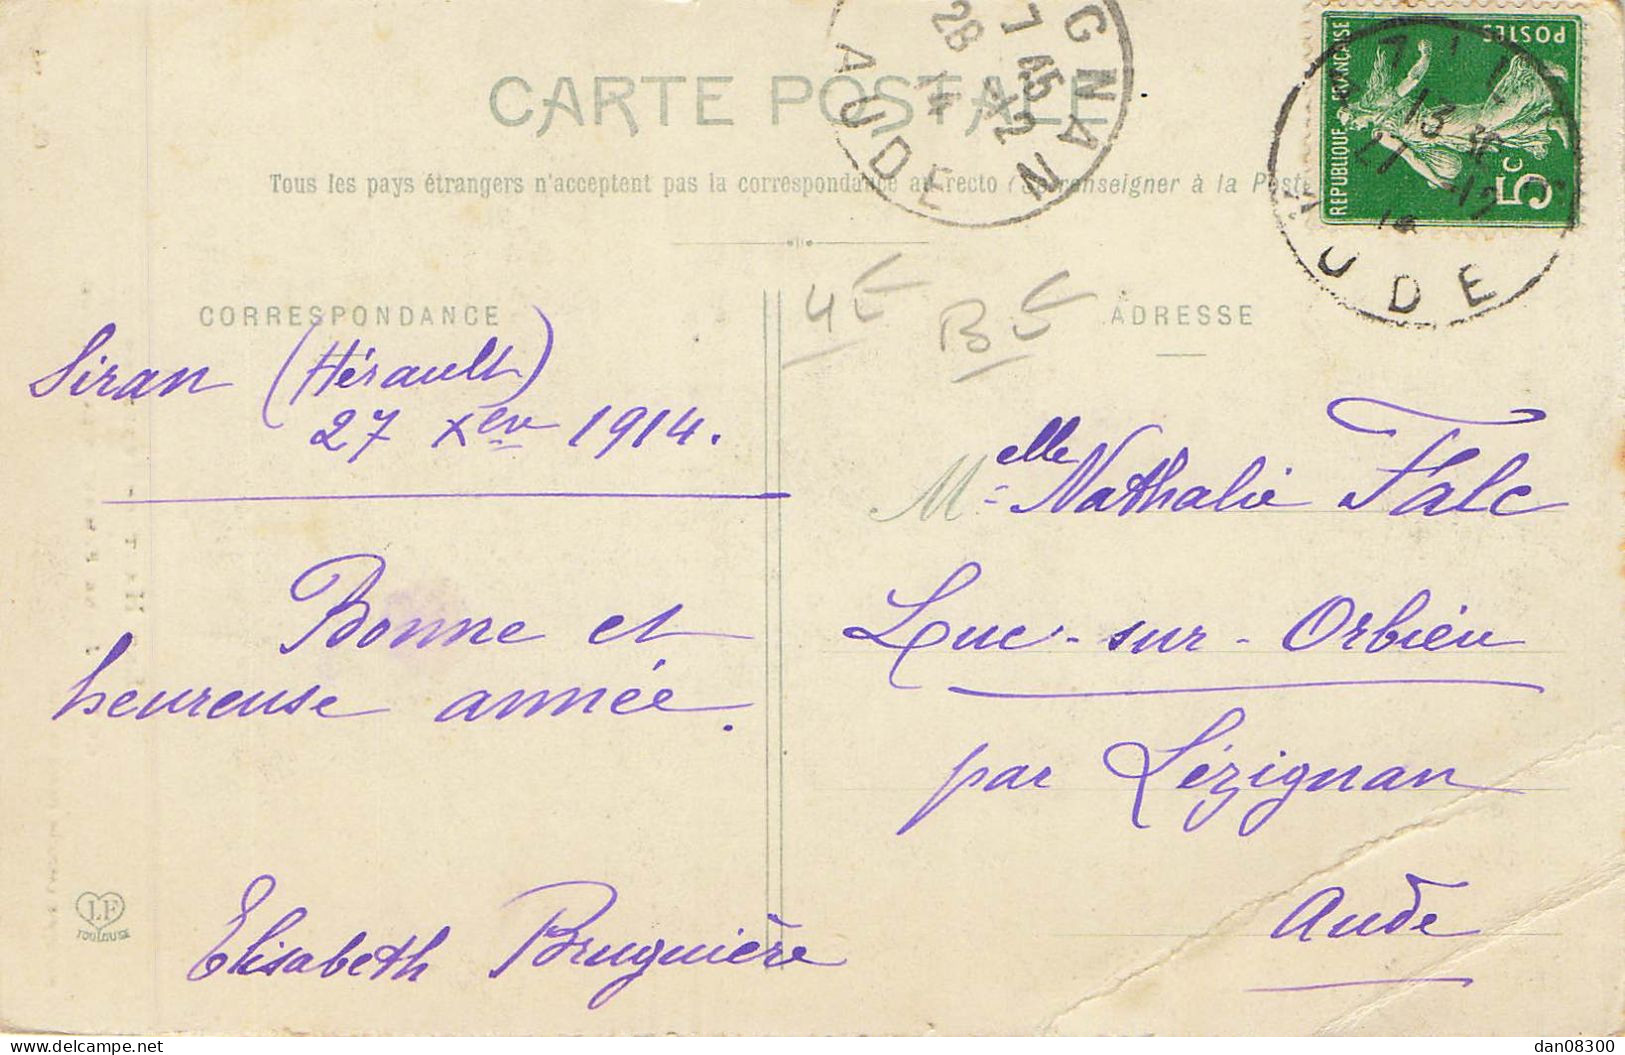 CARTE POSTALE
Tous les pays étrangers n'acceptent pas la correspondance au recto (Se renseigner à la Poste
GNAN
7 45
28 -12
14
AUDE
REPUBLIQUE FRANÇAISE
POSTES
5c
13 30
27 -12
14
AUDE
4
B
CORRESPONDANCE
Siran (Hérault)
27 Xbre 1914.
Bonne et
heureuse année.
Elisabeth Bruguière
LF
TOULOUSE
ADRESSE
Melle Nathalie Falc
Luc-sur-Orbieu
par Lézignan
Aude
delcampe.net
dan08300